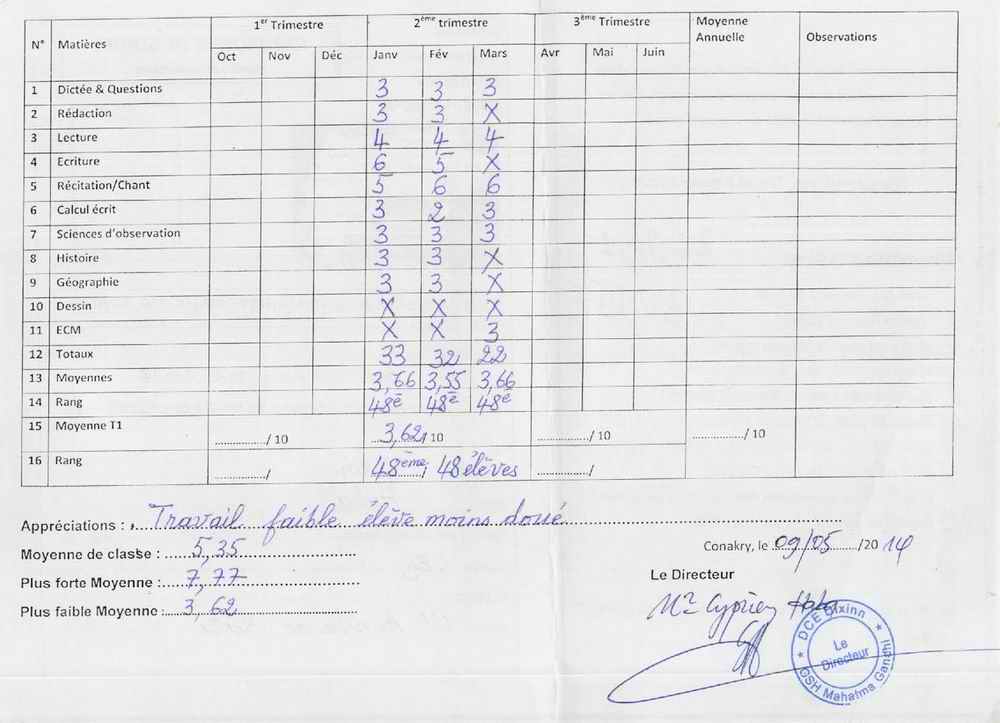 N° Matières 1er Trimestre 2ème trimestre 3ème Trimestre Moyenne Annuelle Observations
Oct Nov Déc Janv Fév Mars Avr Mai Juin
1 Dictée & Questions 3 3 3
2 Rédaction 3 3 X
3 Lecture 4 4 4
4 Ecriture 6 5 X
5 Récitation/Chant 5 6 6
6 Calcul écrit 3 2 3
7 Sciences d'observation 3 3 3
8 Histoire 3 3 X
9 Géographie 3 3 X
10 Dessin X X X
11 ECM X X 3
12 Totaux 33 32 22
13 Moyennes 3,66 3,55 3,66
14 Rang 48è 48è 48è
15 Moyenne T1 ............../ 10 ...3,62/10 ............../ 10 ............../ 10
16 Rang ............../ 48ème/ 48 élèves ............../
Appréciations : Travail faible élève moins doué
Moyenne de classe : 5,35
Conakry, le 09/05/2014
Plus forte Moyenne : 7,77
Le Directeur
Plus faible Moyenne : 3,62
Mr Cyprien
DCE Dixinn
Le Directeur
GSH Mahatma Gandhi